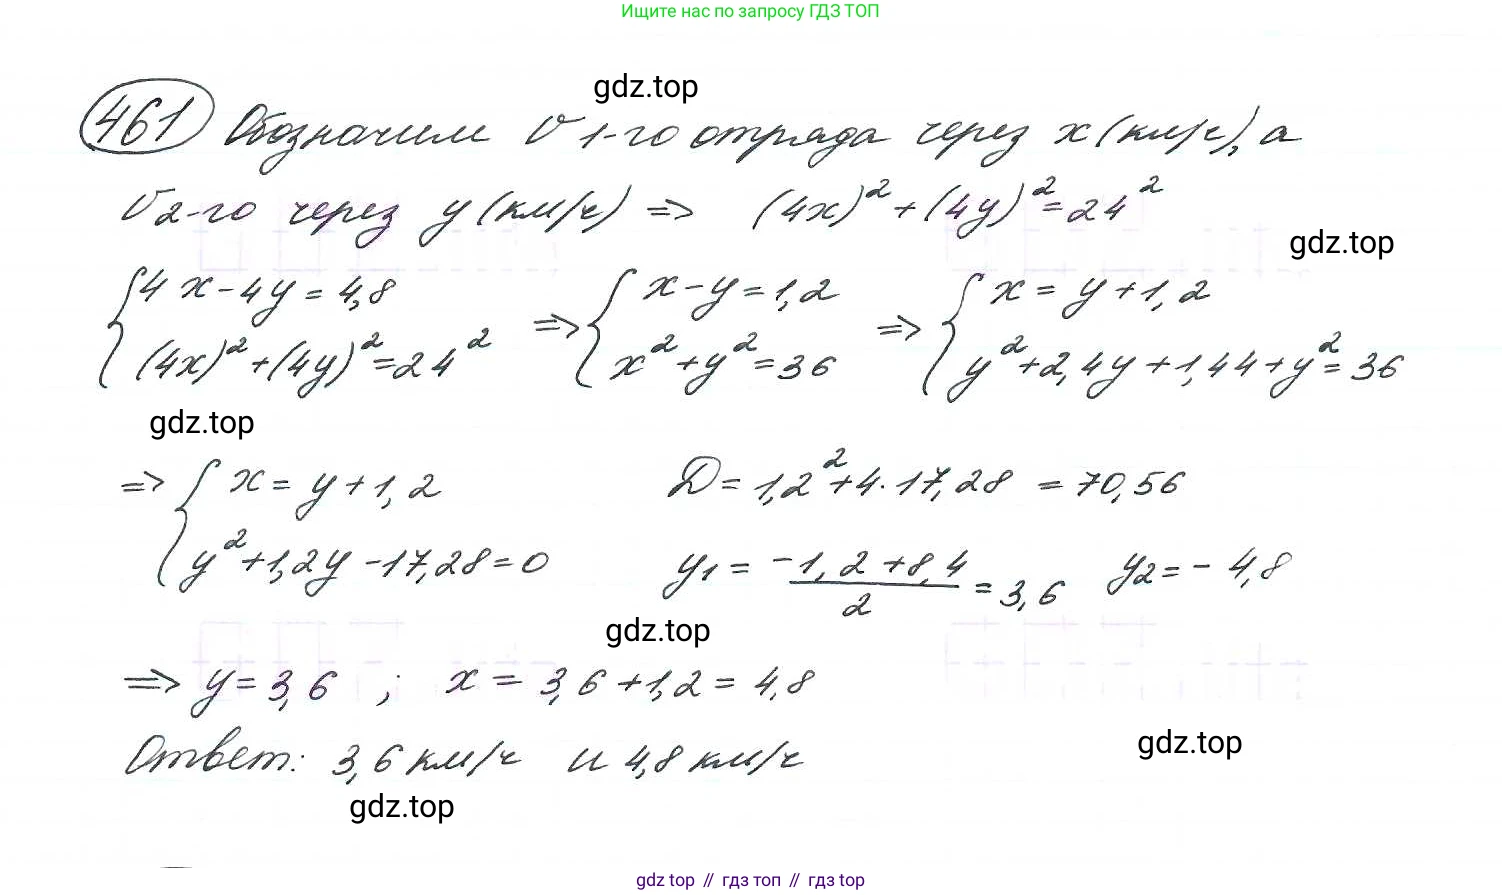 Ищите нас по запросу ГДЗ ТОП
gdz.top
461 Обозначим V 1-го отряда через x (км/ч), а
V 2-го через y (км/ч) => (4x)² + (4y)² = 24²
gdz.top
{ 4x - 4y = 4,8 => { x - y = 1,2 => { x = y + 1,2
(4x)² + (4y)² = 24² x² + y² = 36 y² + 2,4y + 1,44 + y² = 36
gdz.top
=> { x = y + 1,2 D = 1,2² + 4 · 17,28 = 70,56
y² + 1,2y - 17,28 = 0 y₁ = (-1,2 + 8,4)/2 = 3,6 y₂ = - 4,8
gdz.top
=> y = 3,6 ; x = 3,6 + 1,2 = 4,8
Ответ: 3,6 км/ч и 4,8 км/ч
gdz.top
gdz.top
gdz top // гдз топ // гдз top